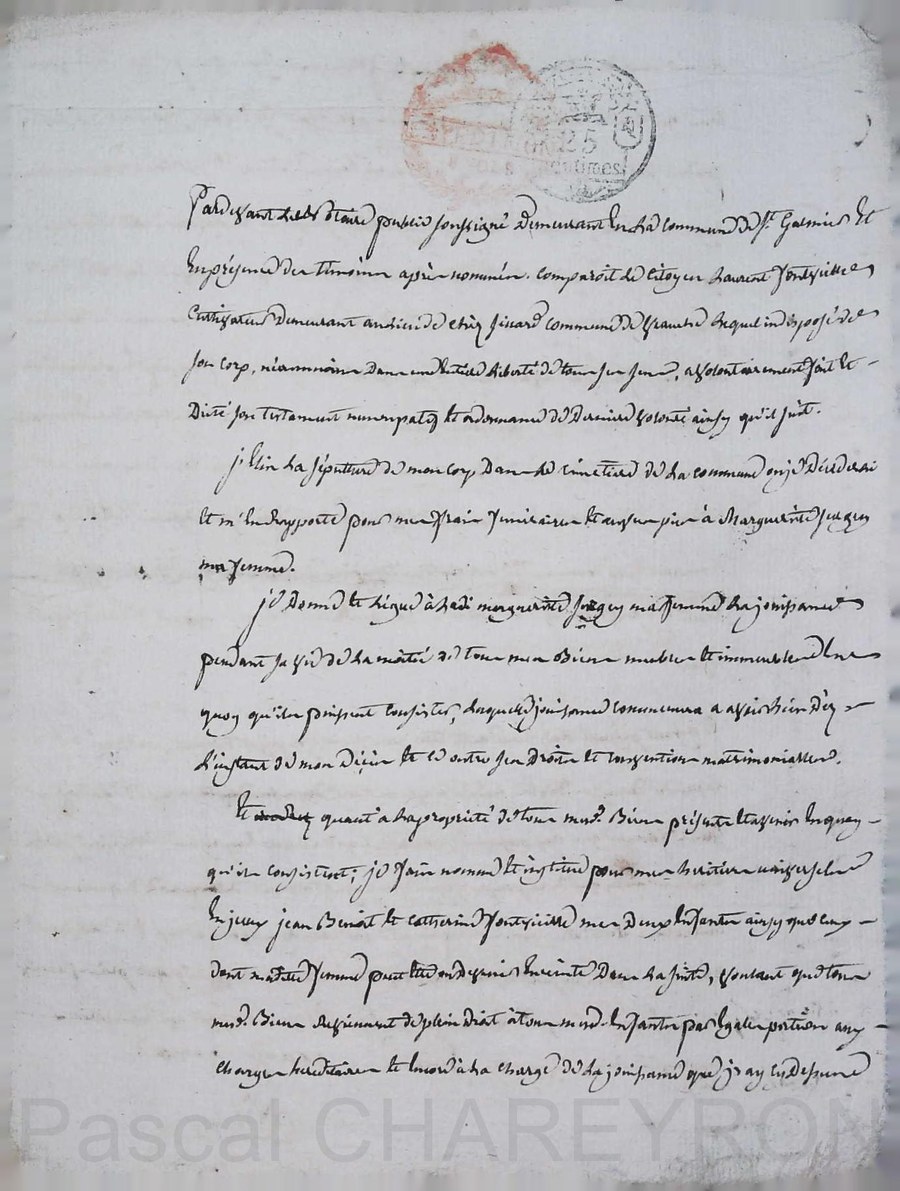 25
centimes
Pardevant Le Notaire public soussigné Demeurant En La commune de St. Galmier Et
En présence des témoins après nommés. comparoit le citoyen Laurent fontvieille
Cultivateur Demeurant au lieu de chez commune de Lequel indisposé de
son corp, néanmoins Dans une Entière Liberté de tous ses sens, a volontairement fait Et
Dicté son testament nuncupatif Et ordonnance de Derniere volonté ainsy qu'il suit.
j'Elis La sépulture de mon corp Dans Le cimetiere de La commune ou je Décederai
Et m'En Rapporte pour mes frais funéraires Et œuvres pies à Marguerite
ma femme.
je Donne Et Lègue à Ladi marguerite ma femme La jouissance
pendant sa vie de La moitié de tous mes Biens meubles Et immeubles En
quoy qu'ils puissent consister, Laquelle jouissance commencera a avoir Lieu Dez
L'instant de mon Décès Et ce outre ses Droits Et convention matrimonialles.
Et quant à La propriété de tous mesd. Biens présents Et avenir En quoy
qu'ils consistent; je fais nomme Et institue pour mes héritiers universels
En jceux jean Benoit Et catherine fontvieille mes Deux Enfants ainsy que ceux
dont madite femme peut Etre ou Devenir Enceinte Dans La suite, voulant que tous
mesd. Biens Reviennent de plein Droit à tous mesd. Enfants par Egale portion aux
charges héréditaires Et Encore à La charge de La jouissance que j'ay cy Dessus
Pascal CHAREYRON